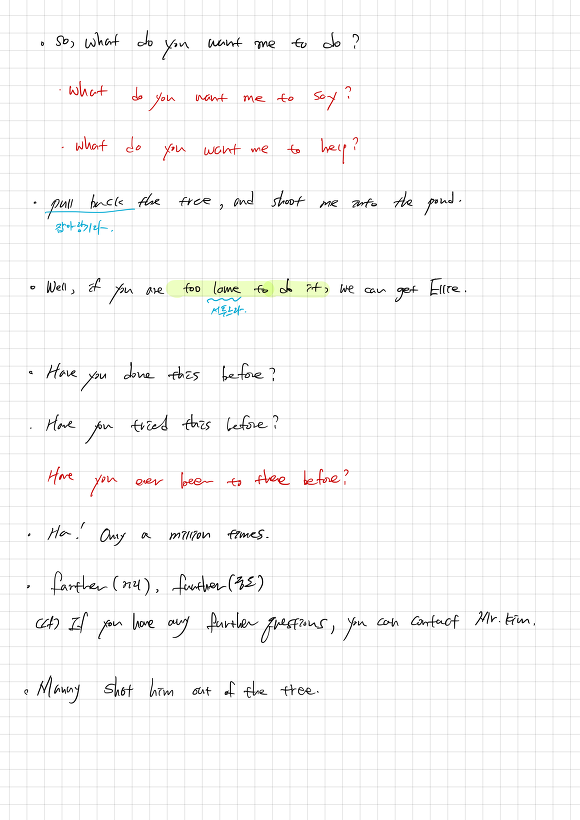 • So, what do you want me to do?
· What do you want me to say?
· What do you want me to help?
• pull back the tree, and shoot me into the pond.
잡아당기다.
• Well, if you are too lame to do it, we can get Ellie.
서투르다.
• Have you done this before?
• Have you tried this before?
Have you ever been to there before?
• Ha! Only a million times.
• farther(거리), further(정도)
ex) If you have any further questions, you can contact Mr. Kim.
• Manny shot him out of the tree.